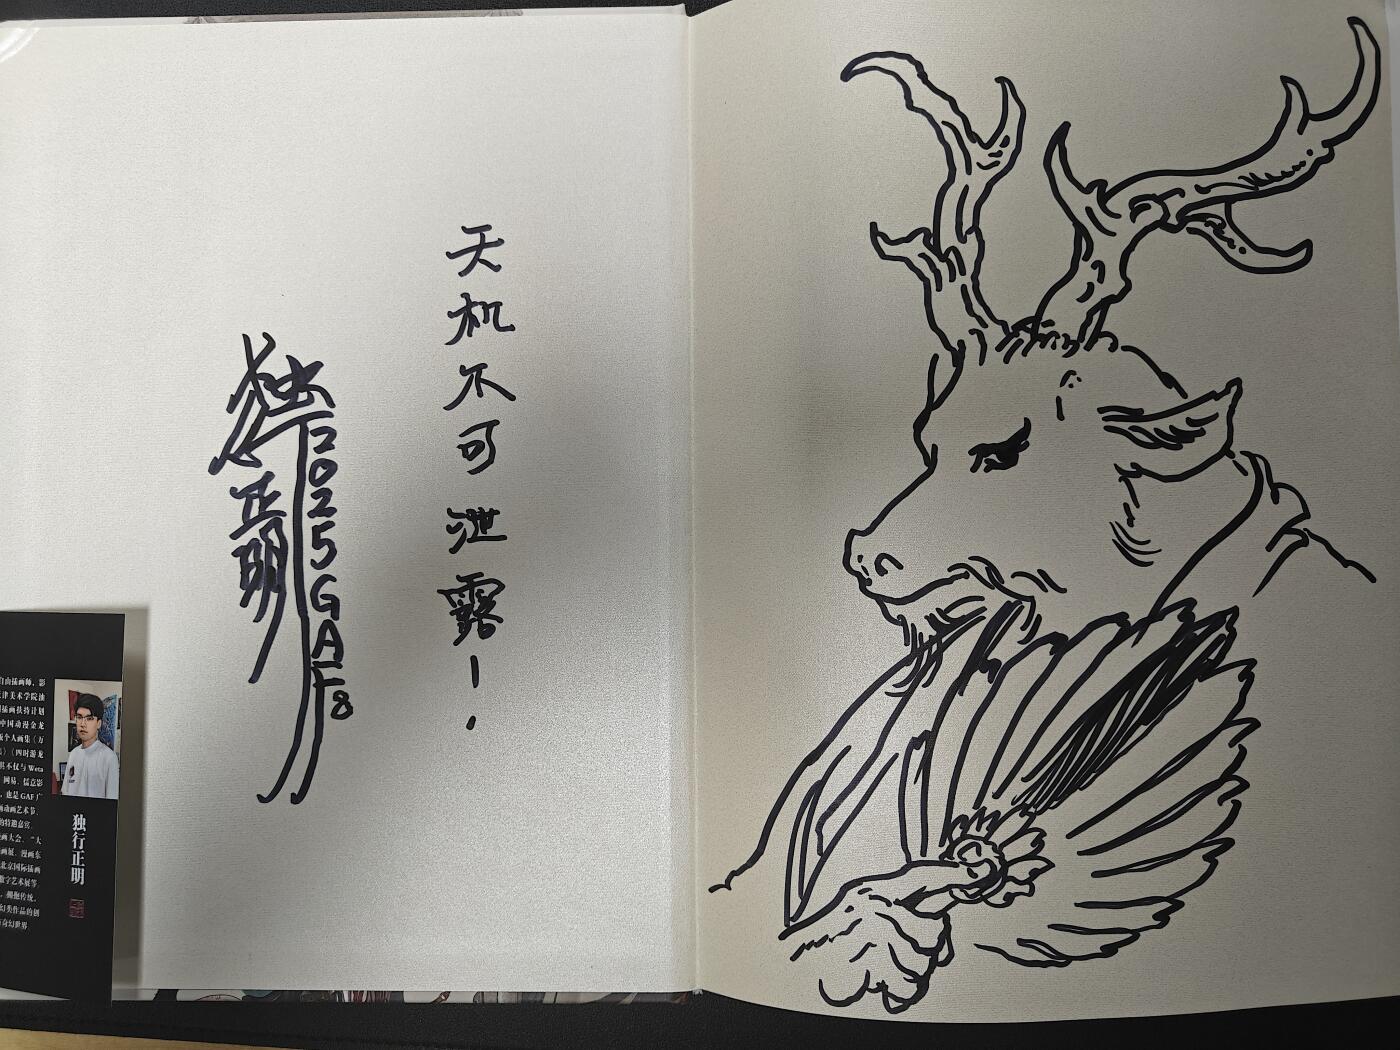 天机不可泄露！
独行正明
2025GAF8
自由插画师，影
天津美术学院油
插画扶持计划
中国动漫金龙
版个人画集《万
》《四时游龙
其不仅与Weta
网易、
，也是GAF广
画动画艺术节、
的特邀嘉宾。
画大会、“大
画展、漫画东
北京国际插画
数字艺术展等
，拥抱传统，
幻类作品的创
奇幻世界
独行正明